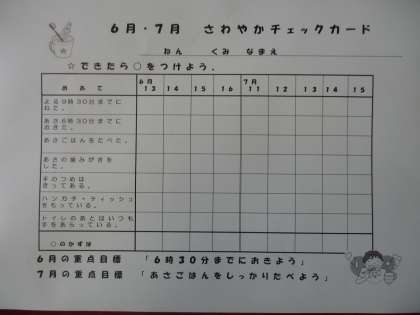 6月・7月 さわやかチェックカード
ねん くみ なまえ
☆できたら○をつけよう。
めあて 6月 13 14 15 16 7月 11 12 13 14 15
よる9時30分までに
ねた。
あさ6時30分までに
おきた。
あさごはんをたべた。
あさの歯みがきを
した。
手のつめは
きってある。
ハンカチ・ティッシュ
をもっている。
トイレのあとはいつも
手をあらっている。
○のかずは
6月の重点目標 「6時30分までにおきよう」
7月の重点目標 「あさごはんをしっかりたべよう」